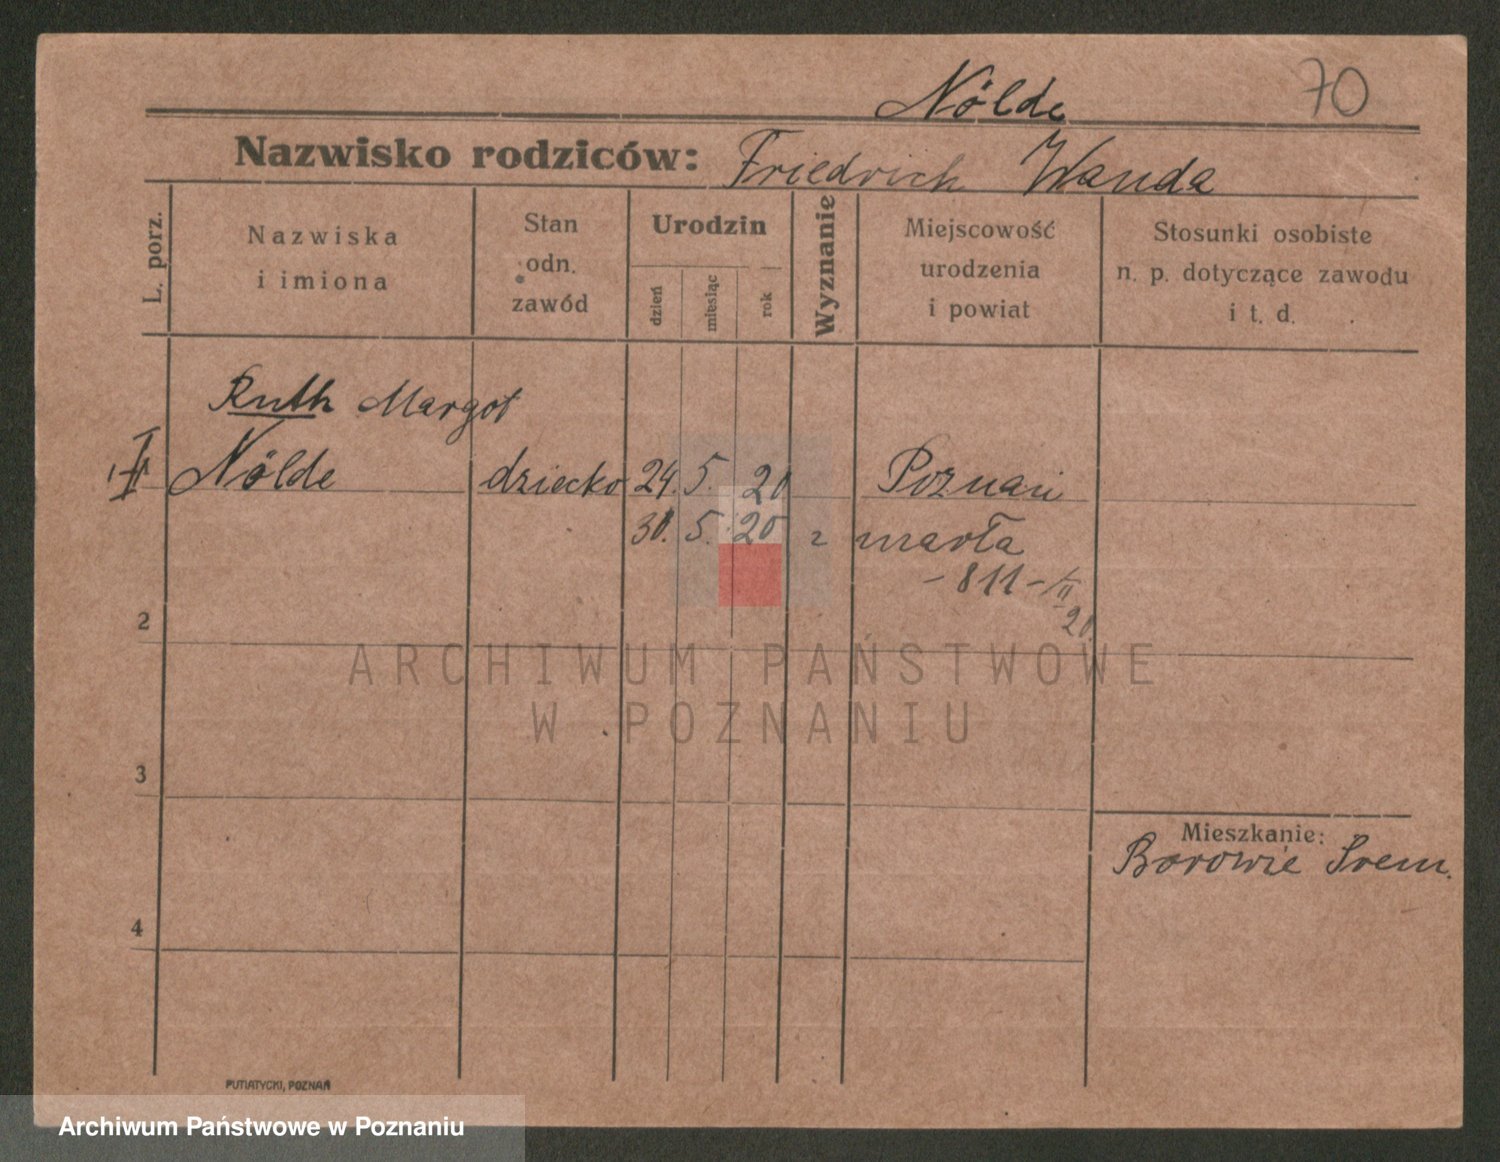 Nölde 70
Nazwisko rodziców: Friedrich Wanda
L. porz.
Nazwiska
i imiona
Stan
odn.
zawód
Urodzin
dzień
miesiąc
rok
Wyznanie
Miejscowość
urodzenia
i powiat
Stosunki osobiste
n. p. dotyczące zawodu
i t. d.
Ruth Margot
Nölde dziecko 24. 5. 20 Poznań
30. 5. 20 zmarła
- 811 - II
20.
2
3
4
Mieszkanie:
Borowie Srem.
PUTIATYCKI, POZNAŃ
ARCHIWUM PAŃSTWOWE
W POZNANIU
Archiwum Państwowe w Poznaniu